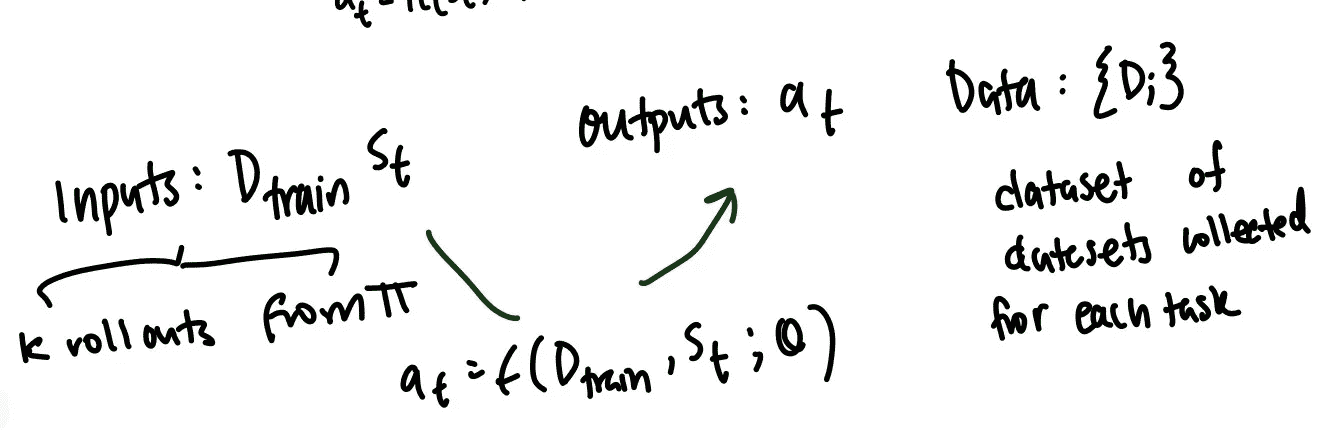 Inputs: D_train s_t
k rollouts from π
outputs: a_t
a_t = f(D_train, s_t; θ)
Data: {D_i}
dataset of
datasets collected
for each task